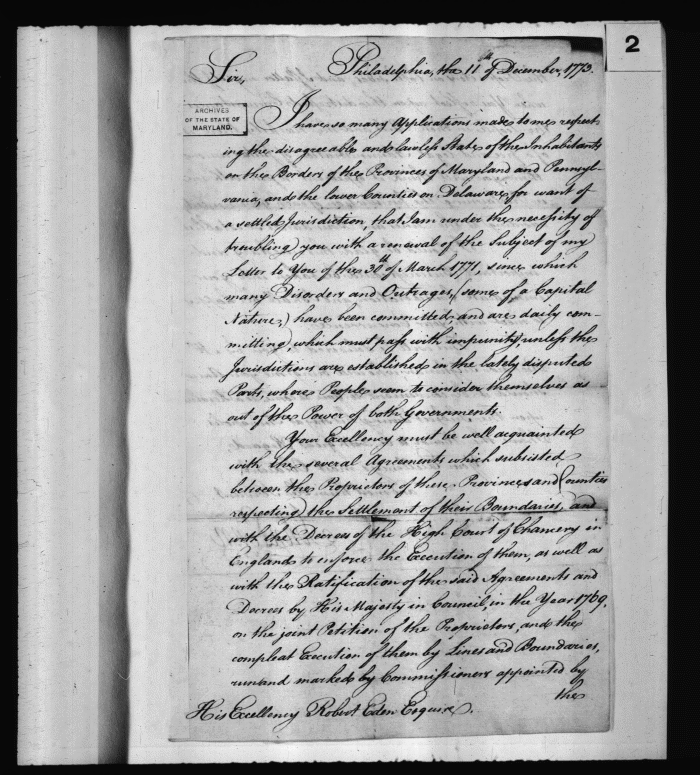 2
Sir,
Philadelphia, the 11th of December, 1773.
ARCHIVES
OF THE STATE OF
MARYLAND.
I have so many Applications made to me respect-
ing the disagreeable and lawless State of the Inhabitants
on the Borders of the Provinces of Maryland and Pennsyl-
vania, and the lower Counties on Delaware, for want of
a settled Jurisdiction, that I am under the necessity of
troubling you with a renewal of the Subject of my
Letter to You of the 30th of March 1771, since which
many Disorders and Outrages, (some of a Capital
Nature,) have been committed, and are daily com-
mitting, which must pass with impunity, unless the
Jurisdictions are established in the lately disputed
Parts, where People seem to consider themselves as
out of the Power of both Governments.
Your Excellency must be well acquainted
with the several Agreements which subsisted
between the Proprietors of these Provinces and Counties
respecting the Settlement of their Boundaries, and
with the Decrees of the High Court of Chancery in
England to enforce the Execution of them, as well as
with the Ratification of the said Agreements and
Decrees by His Majesty in Council, in the Year 1769,
on the joint Petition of the Proprietors, and the
compleat Execution of them by Lines and Boundaries,
run and marked by Commissioners appointed by
the
His Excellency Robert Eden Esquire.